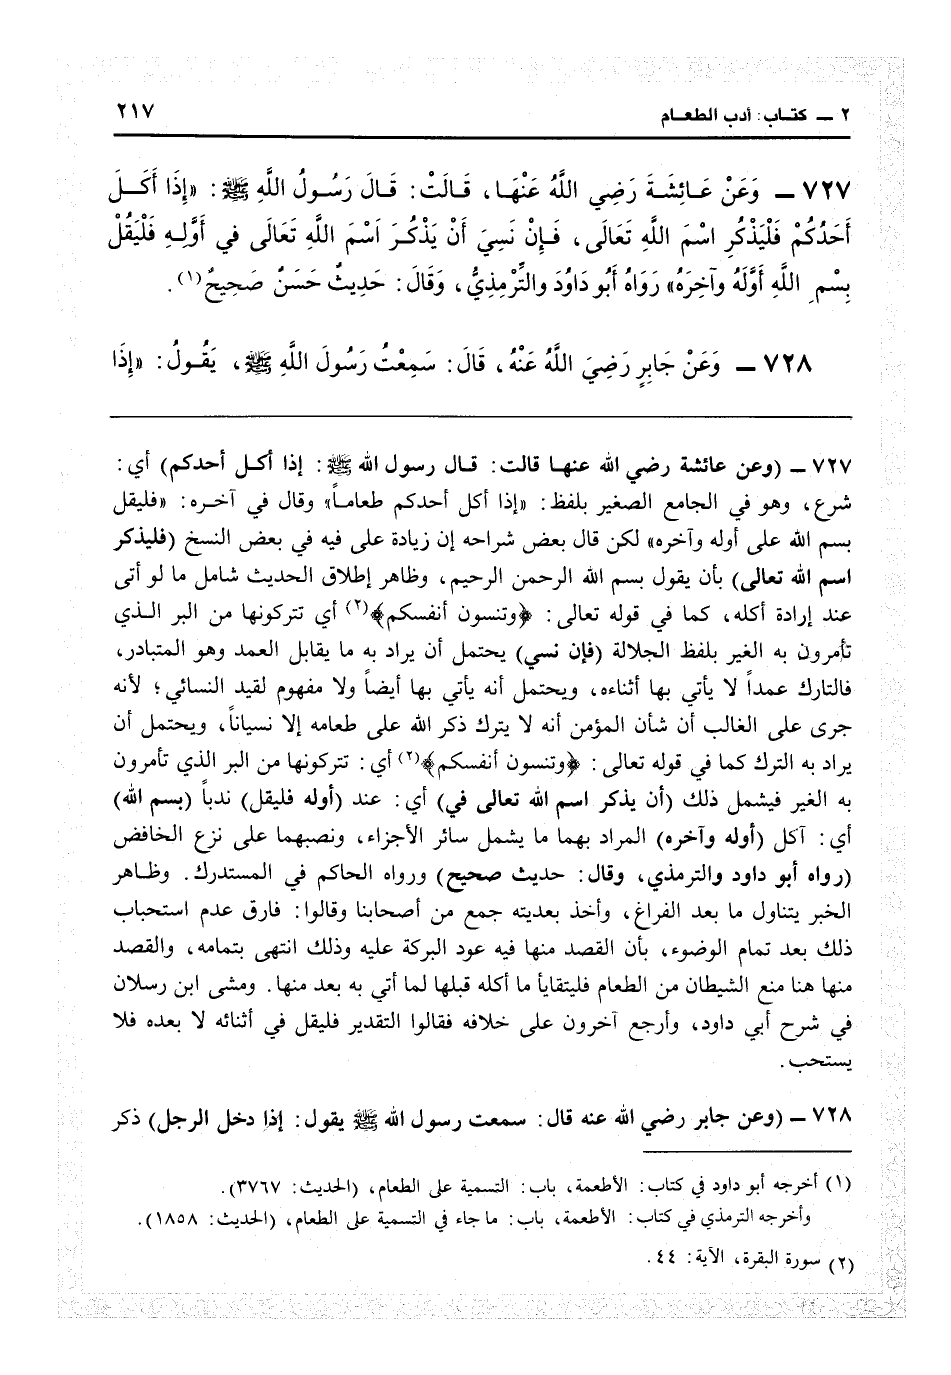 ٢ ـ كتـاب: أدب الطعـام
٢١٧
٧٢٧ ـ وَعَنْ عَـائِشَـةَ رَضِيَ اللَّهُ عَنْهَـا، قَـالَتْ: قَـالَ رَسُـولُ اللَّهِ ﷺ: «إِذَا أَكَـلَ
أَحَدُكُمْ فَلْيَذْكُرِ اسْمَ اللَّهِ تَعَالَى، فَـإِنْ نَسِيَ أَنْ يَذْكُـرَ اَسْمَ اللَّهِ تَعَالَى في أَوَّلِـهِ فَلْيَقُلْ
بِسْمِ اللَّهِ أَوَّلَهُ وآخِرَهُ» رَوَاهُ أَبُو دَاوُدَ والتِّرْمِذِيُّ، وَقَالَ: حَدِيثٌ حَسَنٌ صَحِيحٌ(١).
٧٢٨ ـ وَعَنْ جَابِرٍ رَضِيَ اللَّهُ عَنْهُ، قَالَ: سَمِعْتُ رَسُولَ اللَّهِ ﷺ، يَقُـولُ: «إِذَا
٧٢٧ ـ (وعن عائشة رضي الله عنهـا قالت: قـال رسول الله ﷺ: إذا أكـل أحدكم) أي:
شرع، وهو في الجامع الصغير بلفظ: «إذا أكل أحدكم طعامـاً» وقال في آخـره: «فليقل
بسم الله على أوله وآخره» لكن قال بعض شراحه إن زيادة على فيه في بعض النسخ (فليذكر
اسم الله تعالى) بأن يقول بسم الله الرحمن الرحيم، وظاهر إطلاق الحديث شامل ما لو أتى
عند إرادة أكله، كما في قوله تعالى: ﴿وتنسون أنفسكم﴾(٢) أي تتركونها من البر الـذي
تأمرون به الغير بلفظ الجلالة (فإن نسي) يحتمل أن يراد به ما يقابل العمد وهو المتبادر،
فالتارك عمداً لا يأتي بها أثناءه، ويحتمل أنه يأتي بها أيضاً ولا مفهوم لقيد النسائي؛ لأنه
جرى على الغالب أن شأن المؤمن أنه لا يترك ذكر الله على طعامه إلا نسياناً، ويحتمل أن
يراد به الترك كما في قوله تعالى: ﴿وتنسون أنفسكم﴾(٢) أي: تتركونها من البر الذي تأمرون
به الغير فيشمل ذلك (أن يذكر اسم الله تعالى في) أي: عند (أوله فليقل) ندباً (بسم الله)
أي: آكل (أوله وآخره) المراد بهما ما يشمل سائر الأجزاء، ونصبهما على نزع الخافض
(رواه أبو داود والترمذي، وقال: حديث صحيح) ورواه الحاكم في المستدرك. وظـاهر
الخبر يتناول ما بعد الفراغ، وأخذ بعديته جمع من أصحابنا وقالوا: فارق عدم استحباب
ذلك بعد تمام الوضوء، بأن القصد منها فيه عود البركة عليه وذلك انتهى بتمامه، والقصد
منها هنا منع الشيطان من الطعام فليتقايأ ما أكله قبلها لما أتي به بعد منها. ومشى ابن رسلان
في شرح أبي داود، وأرجع آخرون على خلافه فقالوا التقدير فليقل في أثنائه لا بعده فلا
يستحب.
٧٢٨ ـ (وعن جابر رضي الله عنه قال: سمعت رسول الله ﷺ يقول: إذا دخل الرجل) ذكر
(١) أخرجه أبو داود في كتاب: الأطعمة، باب: التسمية على الطعام، (الحديث: ٣٧٦٧).
وأخرجه الترمذي في كتاب: الأطعمة، باب: ما جاء في التسمية على الطعام، (الحديث: ١٨٥٨).
(٢) سورة البقرة، الآية: ٤٤.